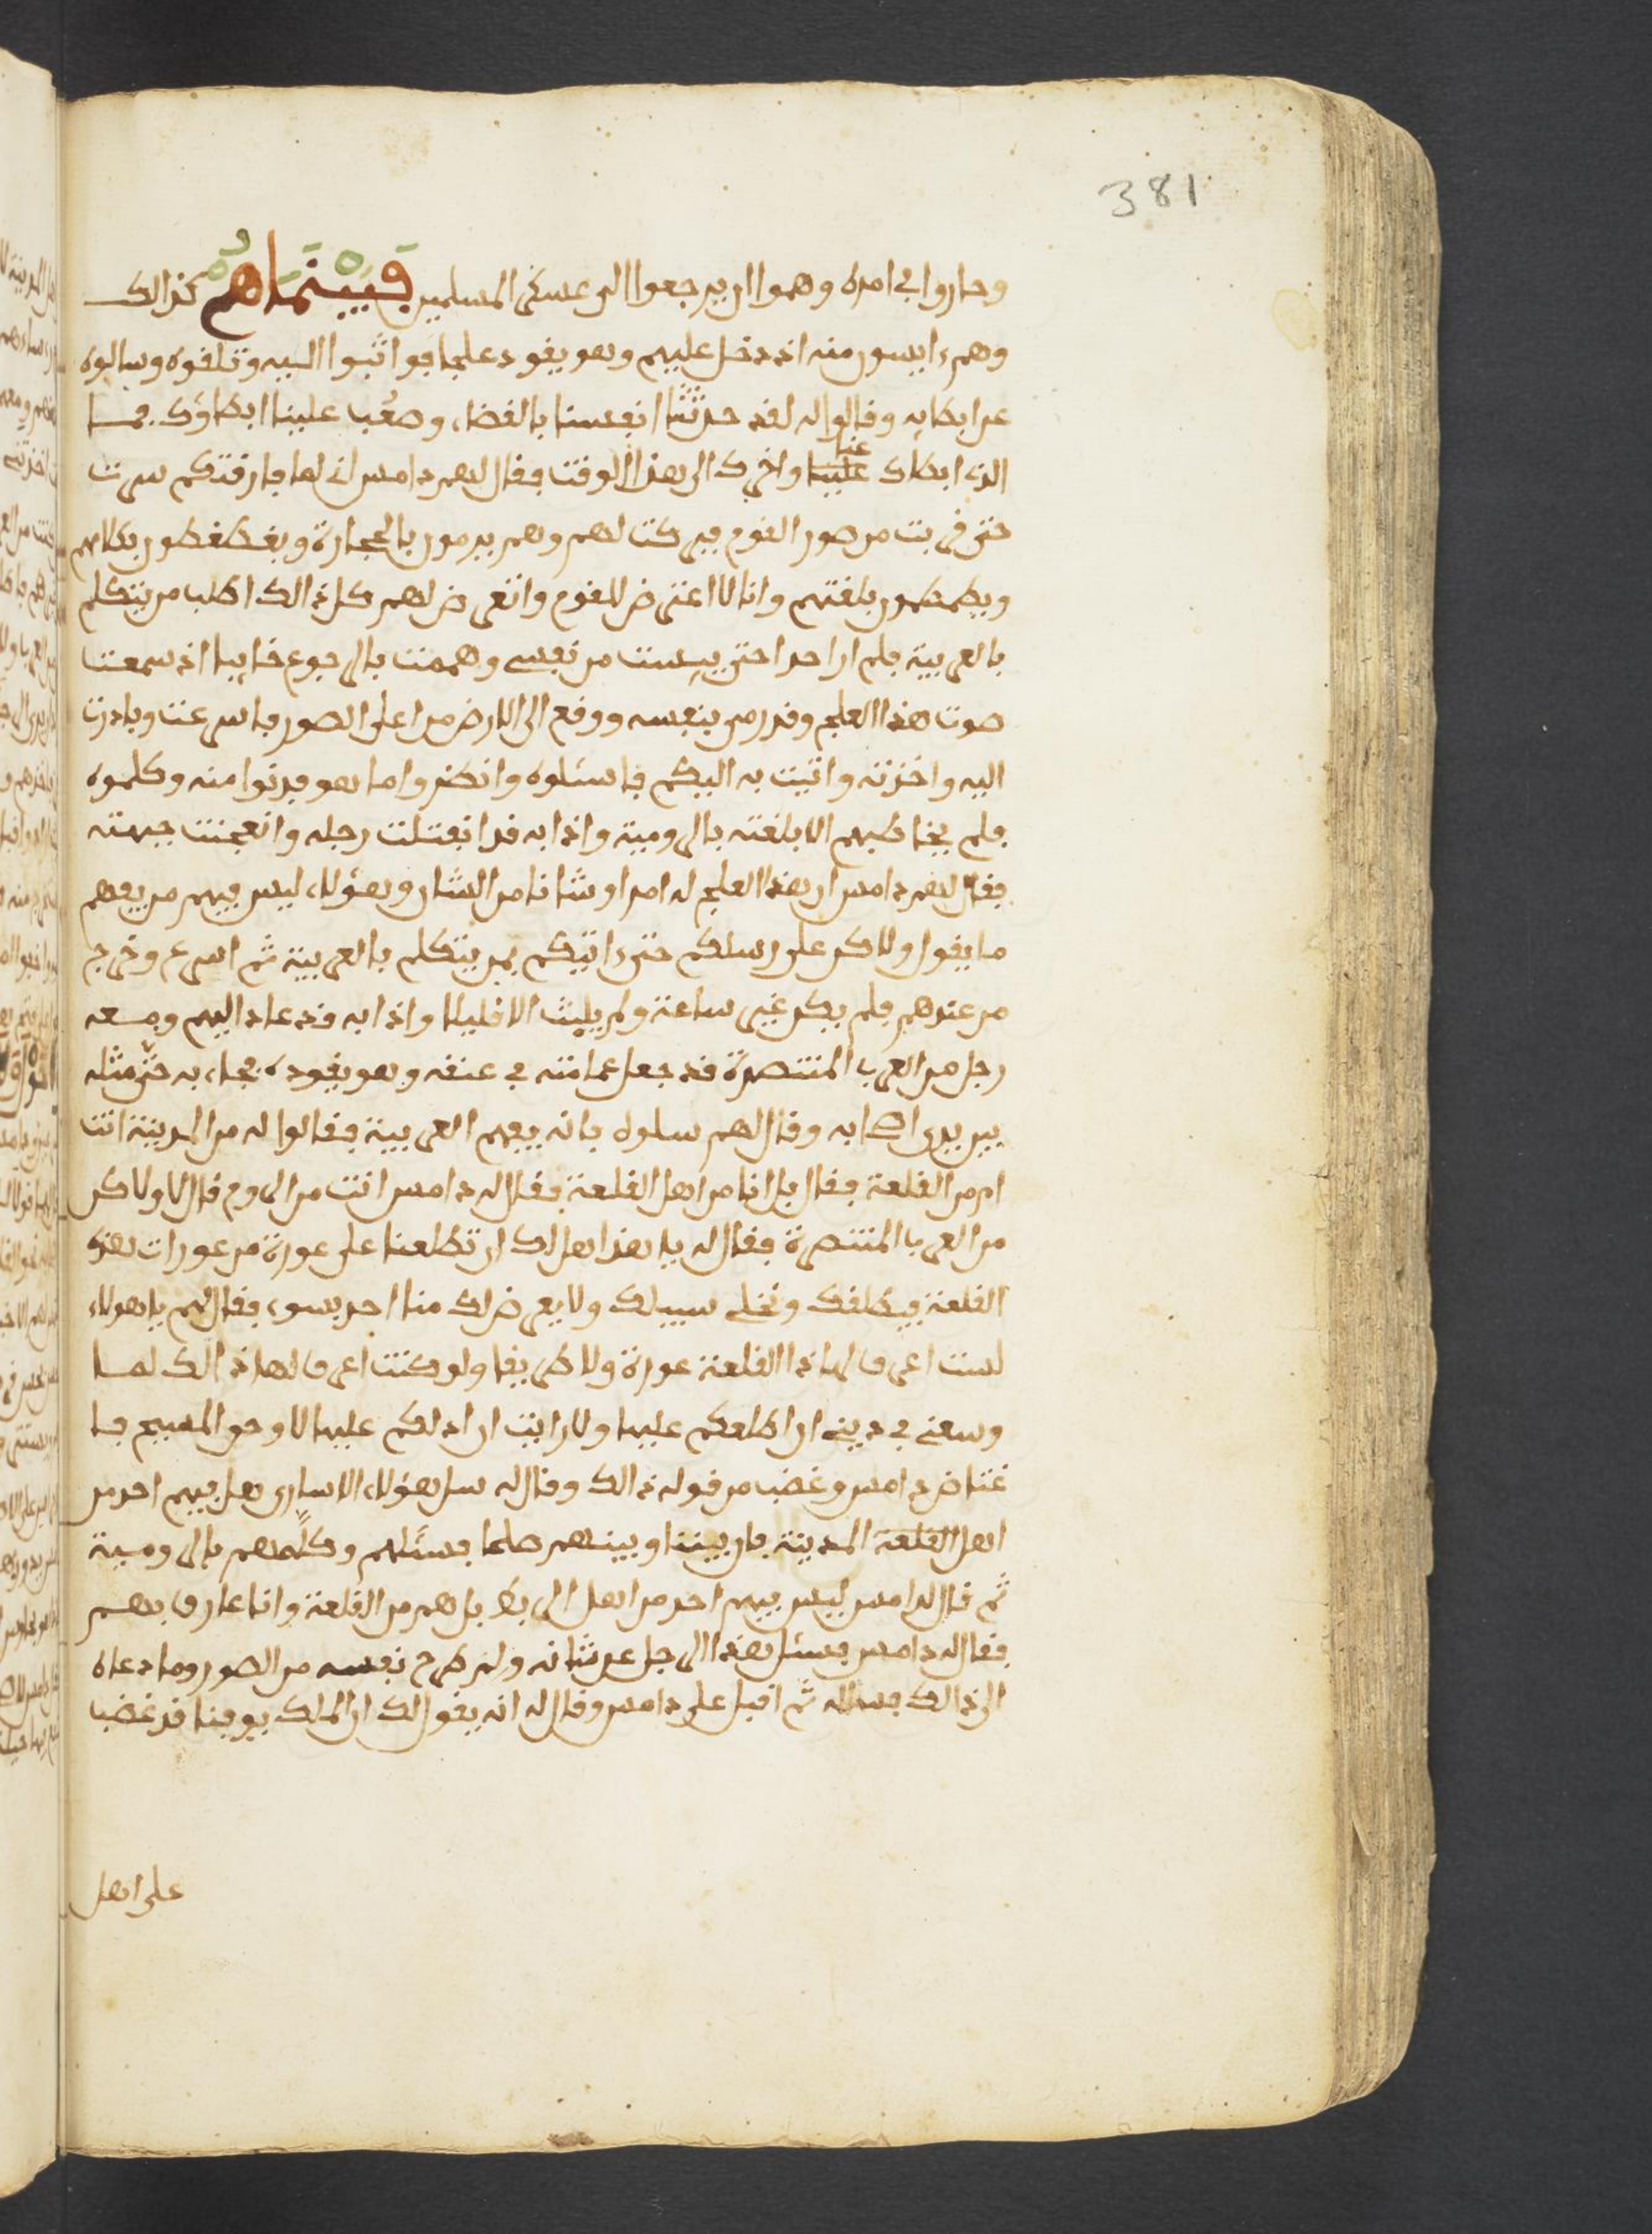 381
وحاروا في امره وهموا ان يرجعوا الى عسكر المسلمين فَبَيْنَمَا هُمْ كذالك
وهم ءايسون منه اذ دخل عليهم وهو يقود علجا فواثبوا اليه وتلقوه وسالوه
عن ابطايه وقالوا له لقد حدثتنا انفسنا بالقضاء وصعُب علينا ابطاؤك فما
الذي ابطاك علينا عنا واخرك الى هذا الوقت فقال لهم دامس اني لما فارقتكم سرت
حتى قربت من صور القوم فبركت لهم وهم يرمون بالحجارة ويغطغطون بكلامهم
ويطمطمون بلغتهم وانا لا اعترض للقوم واتعرض لهم كل ذالك اطلب من يتكلم
بالعربية فلم ار احدا حتى ييست من نفسي وهممت بالرجوع خايبا اذ سمعت
صوت هذا العلج وقد رمى بنفسه ووقع الى الارض من اعلى الصور فاسرعت وبادرت
اليه واخذته واتيت به اليكم فاسئلوه وانظروا ما هو فدنوا منه وكلموه
فلم يخاطبهم الا بلغته بالرومية واذا به قد انفتلت رجله وانعجنت جبهته
فقال لهم دامس ان هذا العلج له امرا وشانا من الشان وهؤلاء ليس فيهم من يفهم
ما يقول ولاكن على رسلكم حتى ءاتيكم بمن يتكلم بالعربية ثم اسرع وخرج
من عندهم فلم يكن غير ساعة ولم يلبث الا قليلا واذا به قد عاد اليهم ومعه
رجل من العرب المتنصرة قد جعل عمامته في عنقه وهو يقوده فجاء به حتى مثله
بين يدي اصحابه وقال لهم سلوه فانه يفهم العربية فقالوا له من المدينة انت
ام من القلعة فقال بل انا من اهل القلعة فقال له دامس انت من الروم قال لا ولاكن
من العرب المتنصرة فقال له يا هذا هل لك ان تطلعنا على عورة من عورات هذه
القلعة فيطلقك ونخلي سبيلك ولا يعرض لك منا احد بسوء فقال لهم يا هولاء
لست اعرف لهاذا القلعة عورة ولا طريقا ولو كنت اعرف لها ذالك لما
وسعني في ديني ان اطلعكم عليها ولا رايت ان ادلكم عليها لا وحق المسيح فا
غتاض دامس وغضب من قوله ذالك وقال له سل هؤلاء الاسارى هل فيهم احد من
اهل القلعة المدينة فان بيننا وبينهم صلحا فسئلهم وكلمهم بالرومية
ثم قال لدامس ليس فيهم احد من اهل الربط بل هم من القلعة وانا عارف بهم
فقال له دامس فسئل هذا الرجل عن شانه ولم طرح نفسه من الصور وما دعاه
الى ذالك فساله ثم اقبل على دامس وقال له انه يقول لك ان الملك يوقنا قد غضب
على اهل